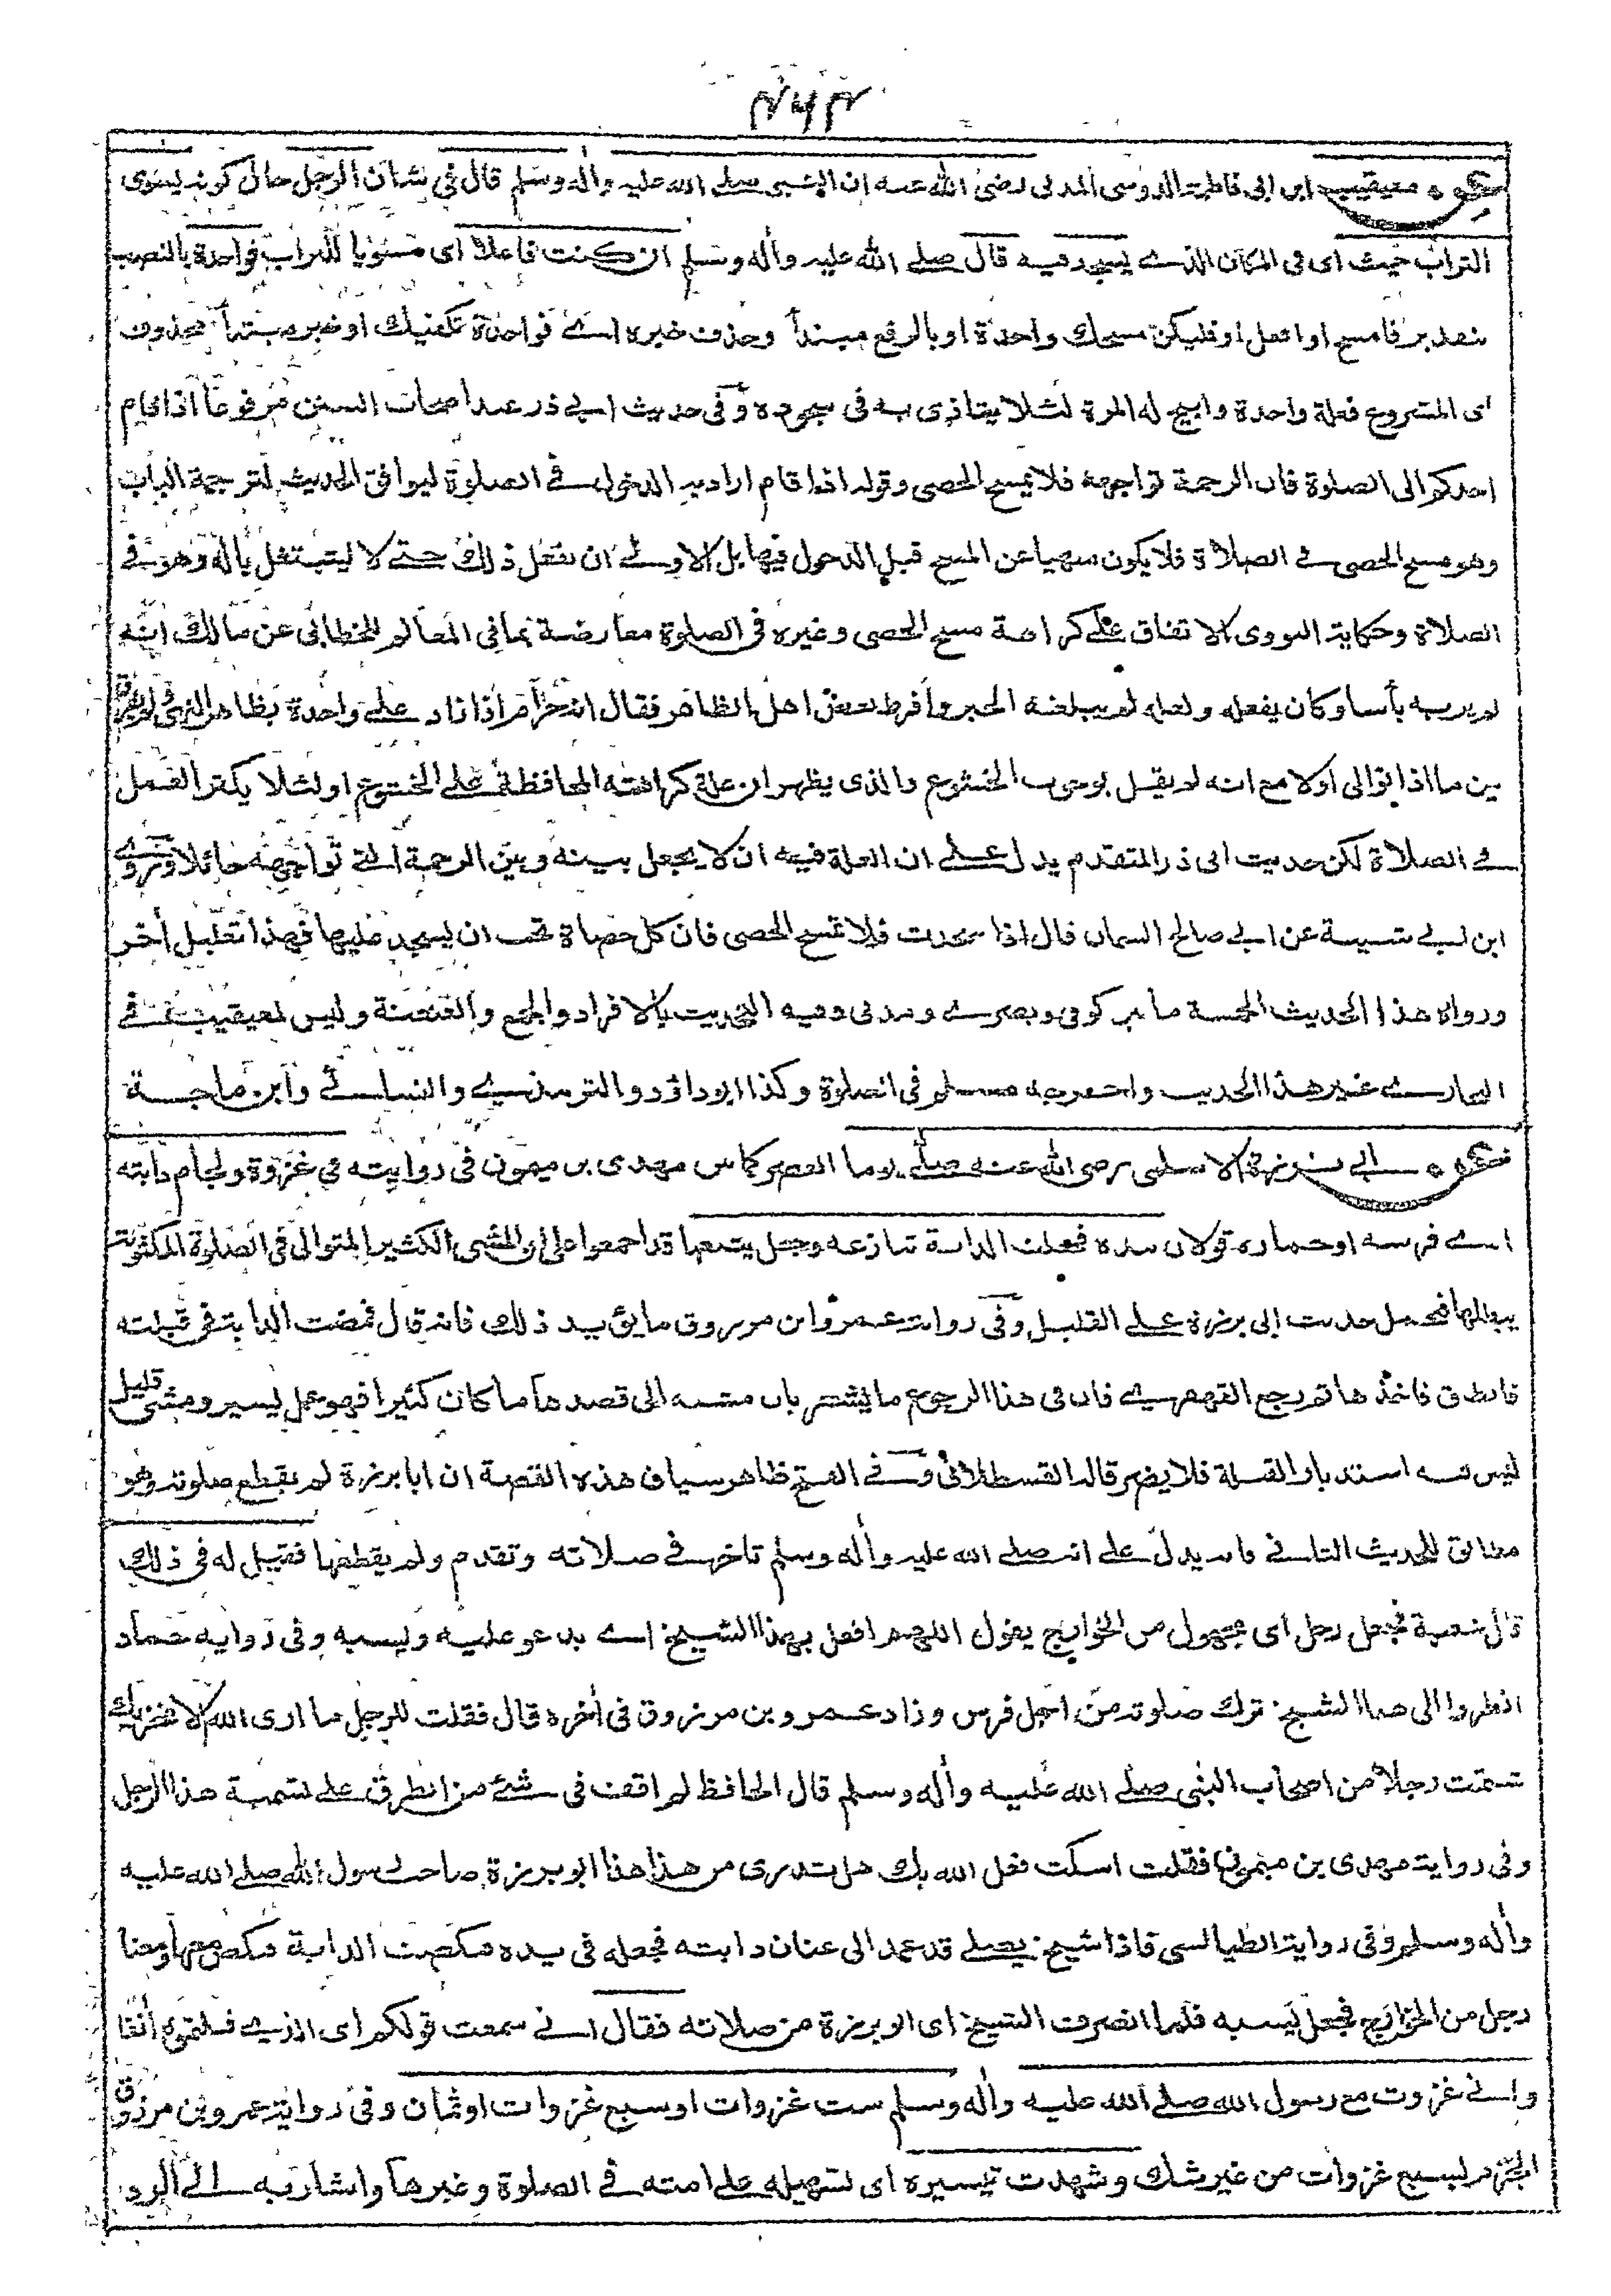 ۴۶۴
عن معيقيب ابن ابى فاطمة الدوسى المدنى رضى الله عنه ان النبى صلى الله عليه وأله وسلم قال فى شان الرجل حال كونه يسوى
التراب حيث اى فى المكان الذى يسجد فيه قال صلى الله عليه وأله وسلم ان كنت فاعلا اى مسويا للتراب فواحدة بالنصب
بتقدير فامسح او افعل او فليكن مسحك واحدة او بالرفع مبتدأ وحذف خبره اى فواحدة تكفيك او خبر مبتدأ محذوف
اى المشروع فعلة واحدة وابيح له المرة لئلا يتاذى به فى سجوده وفى حديث ابى ذر عند اصحاب السنن مرفوعا اذا قام
احدكم الى الصلوة فان الرحمة تواجهه فلا يمسح الحصى وقوله اذا قام اراد به الدخول فى الصلوة ليوافق الحديث لترجمة الباب
وهو مسح الحصى فى الصلاة فلا يكون منهيا عن المسح قبل الدخول فيها بل الاولى ان يفعل ذلك حتى لا يشتغل باله وهو فى
الصلاة وحكاية النووى الاتفاق على كراهة مسح الحصى وغيره فى الصلوة معارضة بما فى المعالم للخطابى عن مالك انه
لم ير به بأسا وكان يفعله ولعله لم يبلغه الخبر وأفرط بعض اهل الظاهر فقال انه حرام اذا زاد على واحدة بظاهر النهى ولم يفرق
بين ما اذا توالى اولا مع انه لم يقل بوجوب الخشوع والذى يظهر ان علة كراهته المحافظة على الخشوع او لئلا يكثر العمل
فى الصلاة لكن حديث ابى ذر المتقدم يدل على ان العلة فيه ان لا يجعل بينه وبين الرحمة التى تواجهه حائلا وروى
ابن ابى شيبة عن ابى صالح السمان قال اذا سجدت فلا تمسح الحصى فان كل حصاة تحب ان يسجد عليها فهذا تعليل أخر
ورواة هذا الحديث الخمسة ما بين كوفى وبصرى ومدنى وفيه التحديث بالافراد والجمع والعنعنة وليس لمعيقيب فى
البخارى غير هذا الحديث واخرجه مسلم فى الصلوة وكذا ابو داؤد والترمذى والنسائى وابن ماجة
عن ابى برزة الاسلمى رضى الله عنه صلى يوما العصر كما عن مهدى بن ميمون فى روايته فى غزوة ولجام دابته
اى فرسه او حماره قولان بيده فجعلت الدابة تنازعه وجعل يتبعها قد اجمعوا على ان المشى الكثير المتوالى فى الصلوة المكتوبة
يبطلها فيحمل حديث ابى برزة على القليل وفى رواية عمرو ابن مرزوق ما يؤيد ذلك فانه قال فمضت الدابة فى قبلته
فانطلق فاخذها ثم رجع القهقرى فان فى هذا الرجوع ما يشعر بان مشيه الى قصدها ما كان كثيرا فهو عمل يسير ومشى قليل
ليس فيه استدبار القبلة فلا يضر قاله القسطلانى وفى الفتح ظاهر سياق هذه القصة ان ابا برزة لم يقطع صلوته وهو
مطابق للحديث الثانى فانه يدل على انه صلى الله عليه وأله وسلم تاخر فى صلاته وتقدم ولم يقطعها فقيل له فى ذلك
قال شعبة فجعل رجل اى مجهول من الخوارج يقول اللهم افعل بهذا الشيخ اى يدعو عليه ويسبه وفى رواية حماد
انظروا الى هذا الشيخ ترك صلوته من اجل فرس وزاد عمرو بن مرزوق فى أخره قال فقلت للرجل ما ارى الله الا مخزيك
شتمت رجلا من اصحاب النبى صلى الله عليه وأله وسلم قال الحافظ لم اقف فى شئ من الطرق على تسمية هذا الرجل
وفى رواية مهدى بن ميمون فقلت اسكت فعل الله بك هل تدرى من هذا هذا ابو برزة صاحب رسول الله صلى الله عليه
وأله وسلم وفى رواية الطيالسى فاذا شيخ يصلى قد عمد الى عنان دابته فجعله فى يده فنكصت الدابة فنكص معها ومعنا
رجل من الخوارج فجعل يسبه فلما انصرف الشيخ اى ابو برزة من صلاته فقال انى سمعت قولكم اى الذى قلتموه أنفا
وانى غزوت مع رسول الله صلى الله عليه وأله وسلم ست غزوات او سبع غزوات او ثمان وفى رواية عمرو بن مرزوق
الجزم بسبع غزوات من غير شك وشهدت تيسيره اى تسهيله على امته فى الصلوة وغيرها واشار به الى الرد